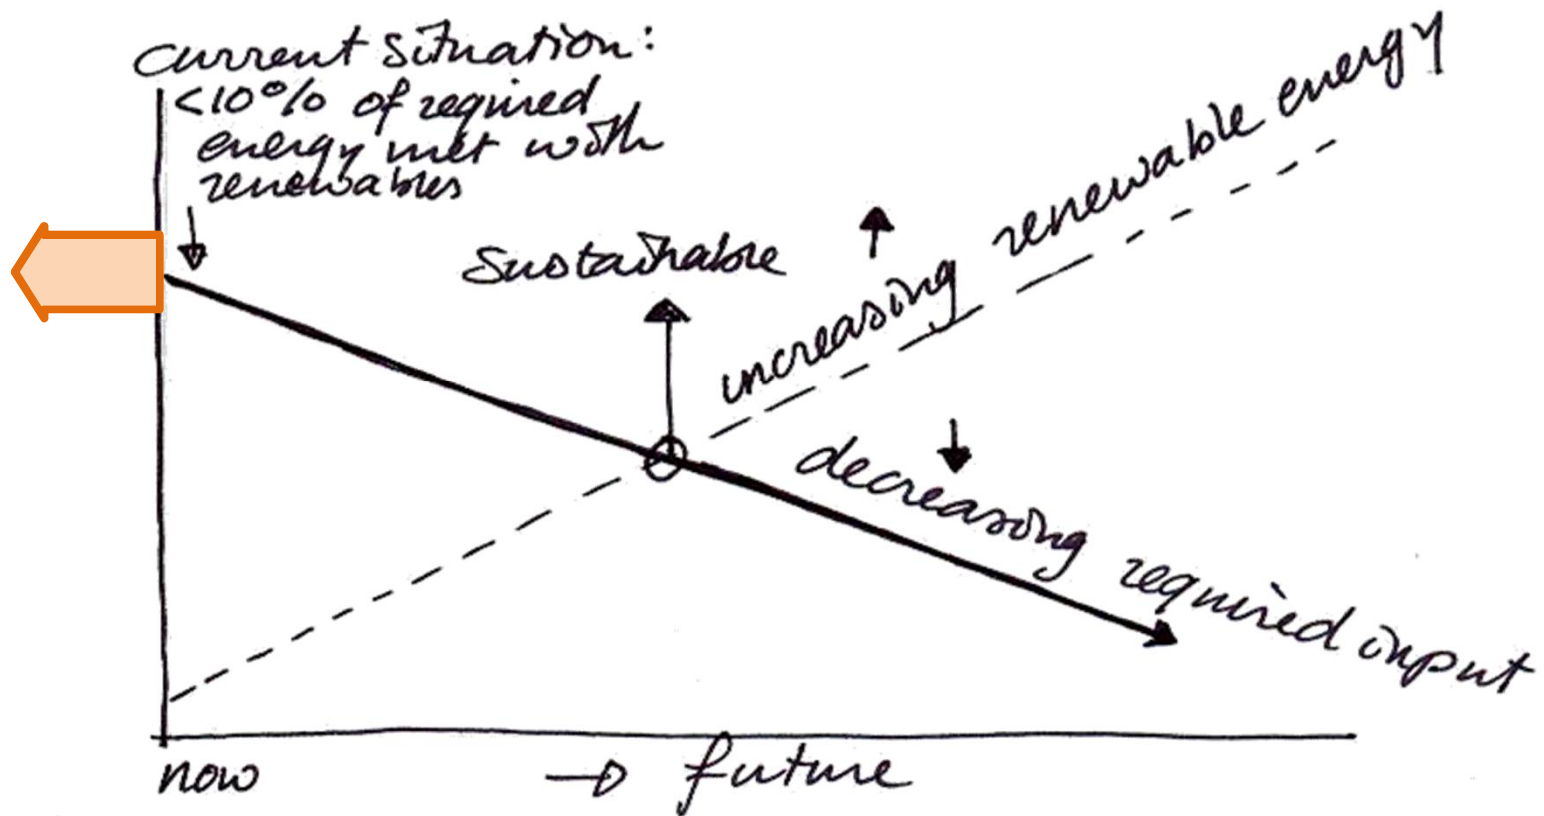 current situation:
<10% of required
energy met with
renewables
Sustainable
increasing renewable energy
decreasing required input
now → future